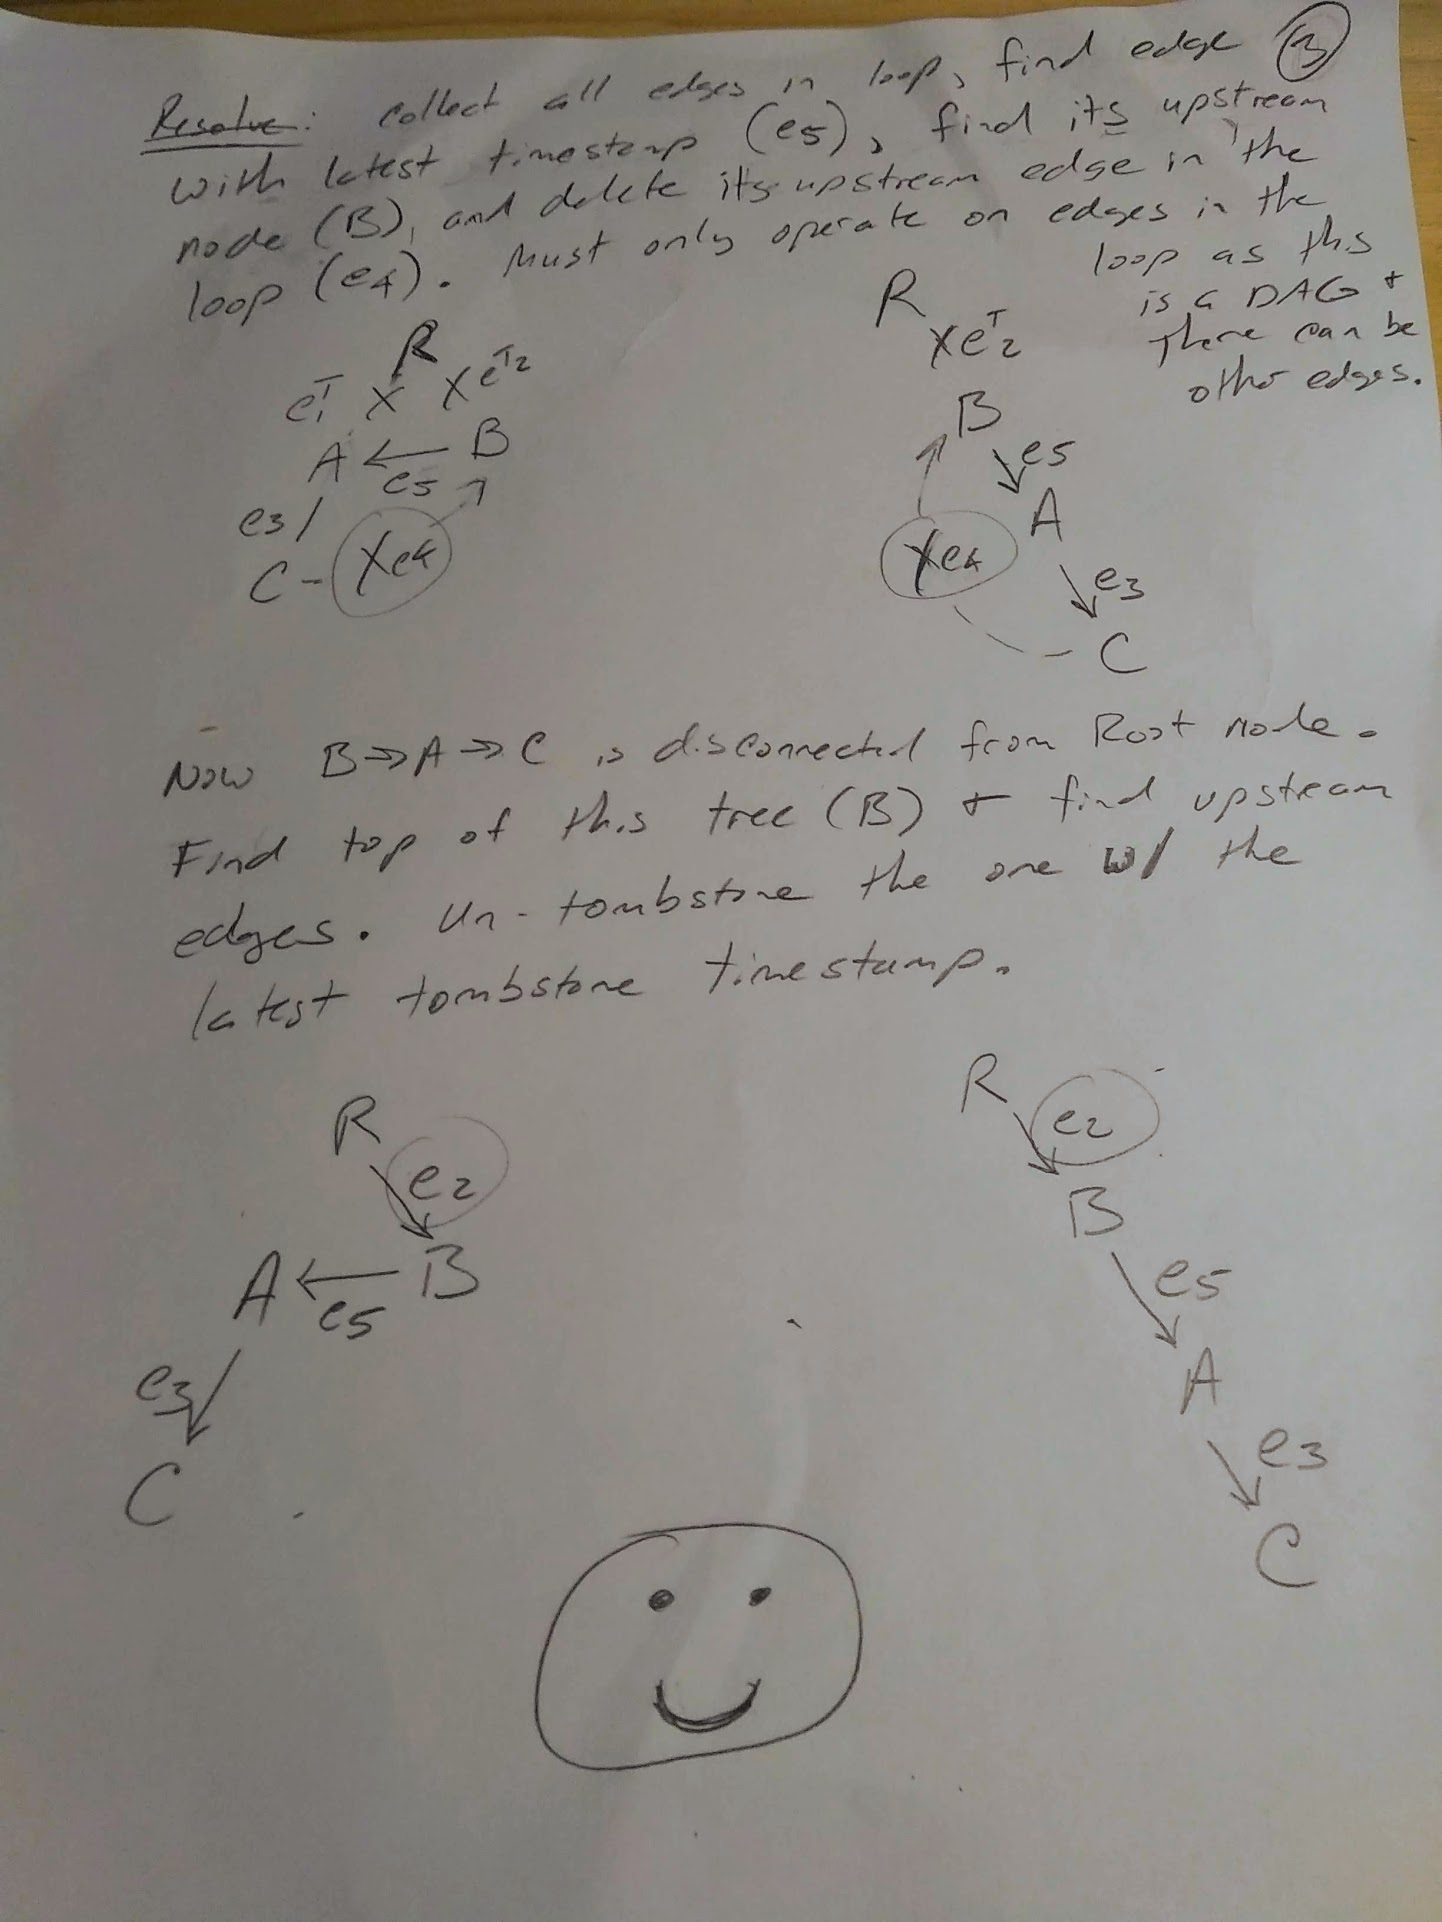 Resolve: collect all edges in loop, find edge 3
with latest timestamp (e5), find its upstream
node (B), and delete its upstream edge in the
loop (e4). Must only operate on edges in the
loop as this
is a DAG +
there can be
other edges.
R
e1T X X eT2
A ← B
e5
e3 /
C - X e4
R
X e2T
B
e5
A
X e4
e3
C
Now B→A→C is disconnected from Root node.
Find top of this tree (B) + find upstream
edges. Un-tombstone the one w/ the
latest tombstone timestamp.
R
e2
A ← B
e5
e3
C
R
e2
B
e5
A
e3
C